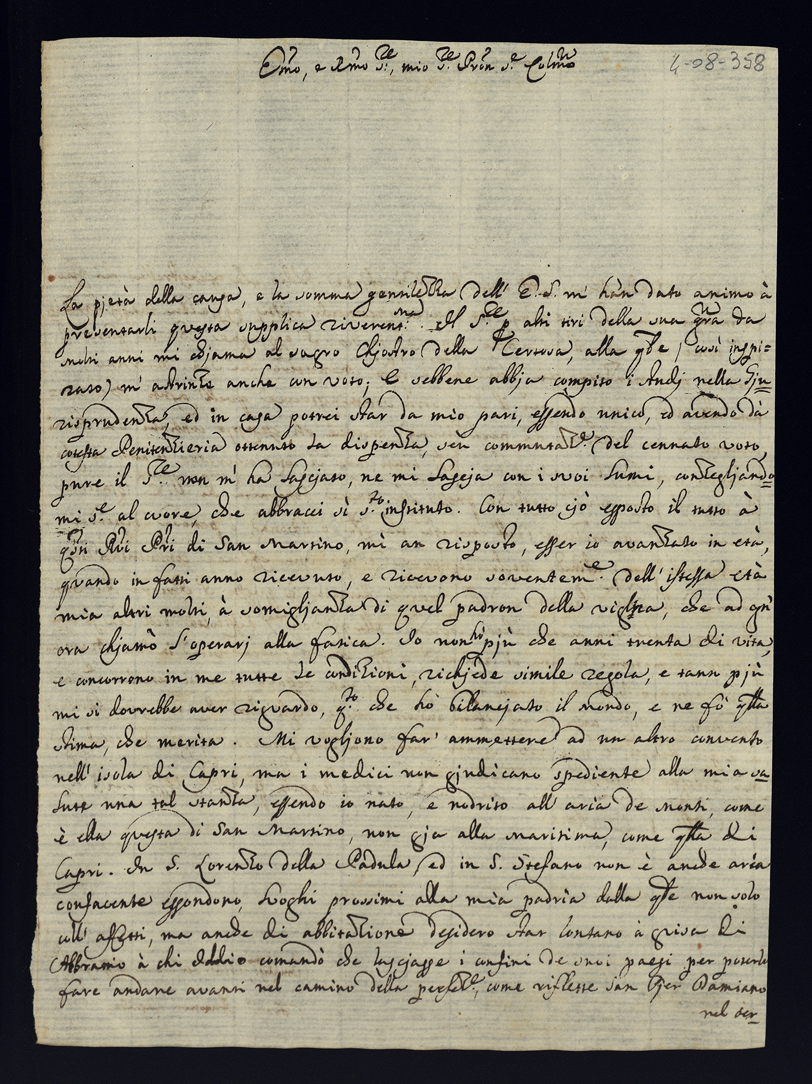 Emo, e Rmo Sre, mio Sre Prõn Se Colmo
4-08-358
La pjetà della causa, e la somma gentilezza dell' E. S. m' hàn dato animo à
presentarli questa supplica riverentma. Il Sre p altri tiri della sua gra da
molti anni mi chjama al sagro Chjostro della Certosa, alla qle (così inspi=
rato) m' astrinze anche con voto; E sebbene abbja compito i studj nella Gju
risprudenza, ed in casa potrei star da mio pari, essendo unico, ed avendo dà
cotesta Penitenzieria ottenuto la dispenza, seu commutaze del cennato voto,
pure il Sre non m' ha lasciato, ne mi lascja con i suoi lumi, consegljando
mi se al cuore, che abbracci sì sto instituto. Con tutto cjò esposto il tutto à
qsti Rdi Pri di San Martino, mi an risposto, esser io avanzato in età,
quando in fatti anno ricevuto, e ricevono soventeme. dell' istessa età
mia altri molti, à somiglianza di quel padron della viglna, che ad gn'
ora chjamò l'operarj alla fatica. Io non hò pjù che anni trenta di vita,
e concorrono in me tutte le condizioni, richjede simile regola, e tann pjù
mi si dovrebbe aver riguardo, qto che hò bilancjato il mondo, e ne fò qlla
stima, che merita. Mi vogljono far' ammettere ad un altro convento
nell' isola di Capri, ma i medici non gjudicano spediente alla mia sa
lute una tal stanza, essendo io nato, e nodrito all' aria de monti, come
è ella questa di San Martino, non gja alla maritima, come qlla di
Capri. In S. Lorenzo della Padula, ed in S. Stefano non è anche aria
confacente essondono, luoghi prossimi alla mia padria dalla qle non solo
coll' affetti, ma anche di abbitazione desidero star lontano à guisa di
Abbramo à chi Iddio comandò che lascjasse i confini de suoi paesi per poterlo
fare andare avanti nel camino della perfene, come riflette San Pjer Damiano
nel ser